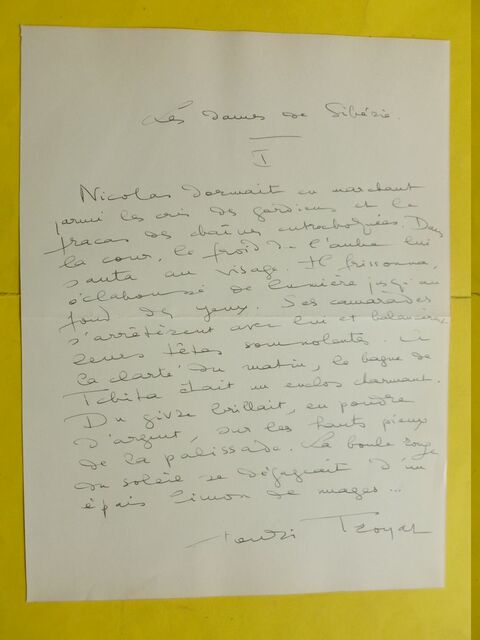 Les dames de Sibérie.
I
Nicolas dormait en marchant
parmi les cris des gardiens et le
fracas des chaînes entrechoquées. Dans
la cour, le froid de l'aube lui
sauta au visage. Il frissonna,
éclaboussé de lumière jusqu'au
fond des yeux. Ses camarades
s'arrêtèrent avec lui et balancèrent
leurs têtes somnolentes. A
la clarté du matin, le bagne de
Tchita était un enclos charmant.
Du givre brillait, en poudre
d'argent, sur les hauts pieux
de la palissade. La boule rouge
du soleil se dégageait d'un
épais limon de nuages...
Henri Troyat